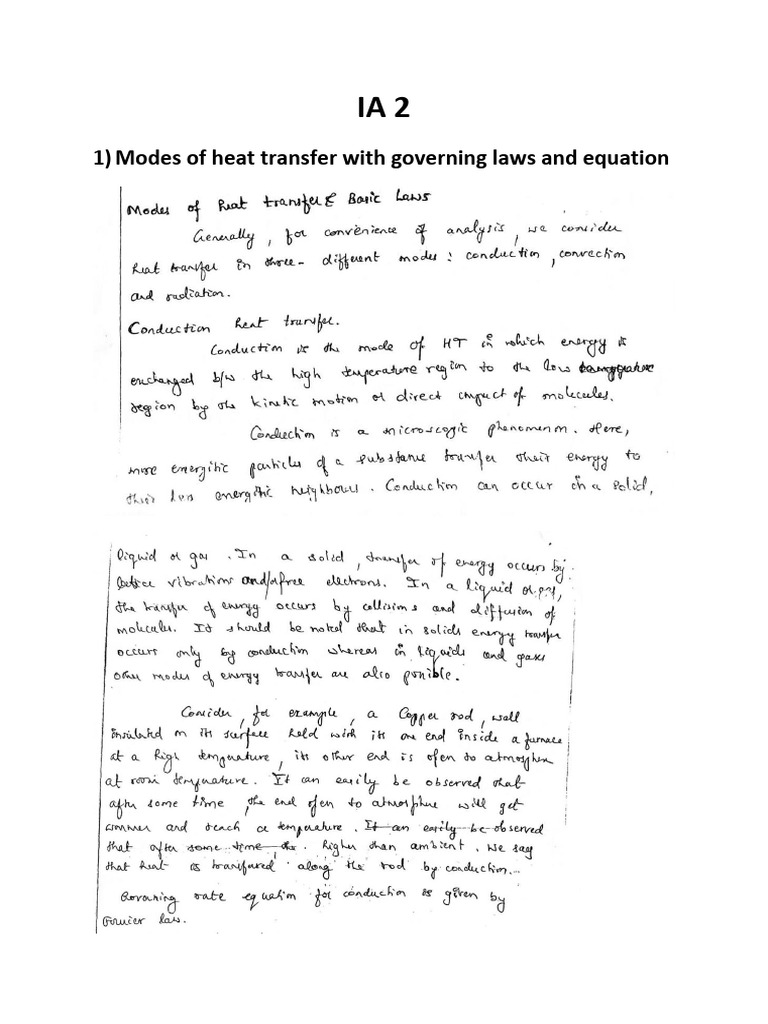 IA 2
1) Modes of heat transfer with governing laws and equation
Modes of Heat transfer & Basic Laws
Generally, for convenience of analysis, we consider
heat transfer in three- different modes: conduction, convection
and radiation.
Conduction heat transfer.
Conduction is the mode of HT in which energy is
exchanged b/w the high temperature region to the low temperature
region by the kinetic motion or direct impact of molecules.
Conduction is a microscopic phenomenon. Here,
more energitic particles of a substance transfer their energy to
their less energitic neighbours. Conduction can occur in a solid,
liquid or gas. In a solid, transfer of energy occurs by
lattice vibrations and/or free electrons. In a liquid or gas,
the transfer of energy occurs by collisions and diffusion of
molecules. It should be noted that in solids energy transfer
occurs only by conduction whereas in liquids and gases
other modes of energy transfer are also possible.
Consider, for example, a Copper rod, well
insulated on its surface held with its one end inside a furnace
at a high temperature, its other end is open to atmosphere
at room temperature. It can easily be observed that
after some time, the end open to atmosphere will get
warmer and reach a temperature. It can easily be observed
that after some time, the. higher than ambient. We say
that heat is transfered along the rod by conduction...
Governing rate equation for conduction is given by
Fourier law.